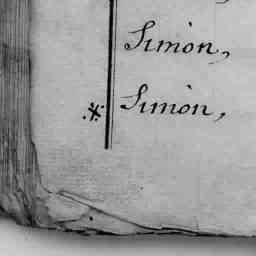 Simòn,
Simòn,